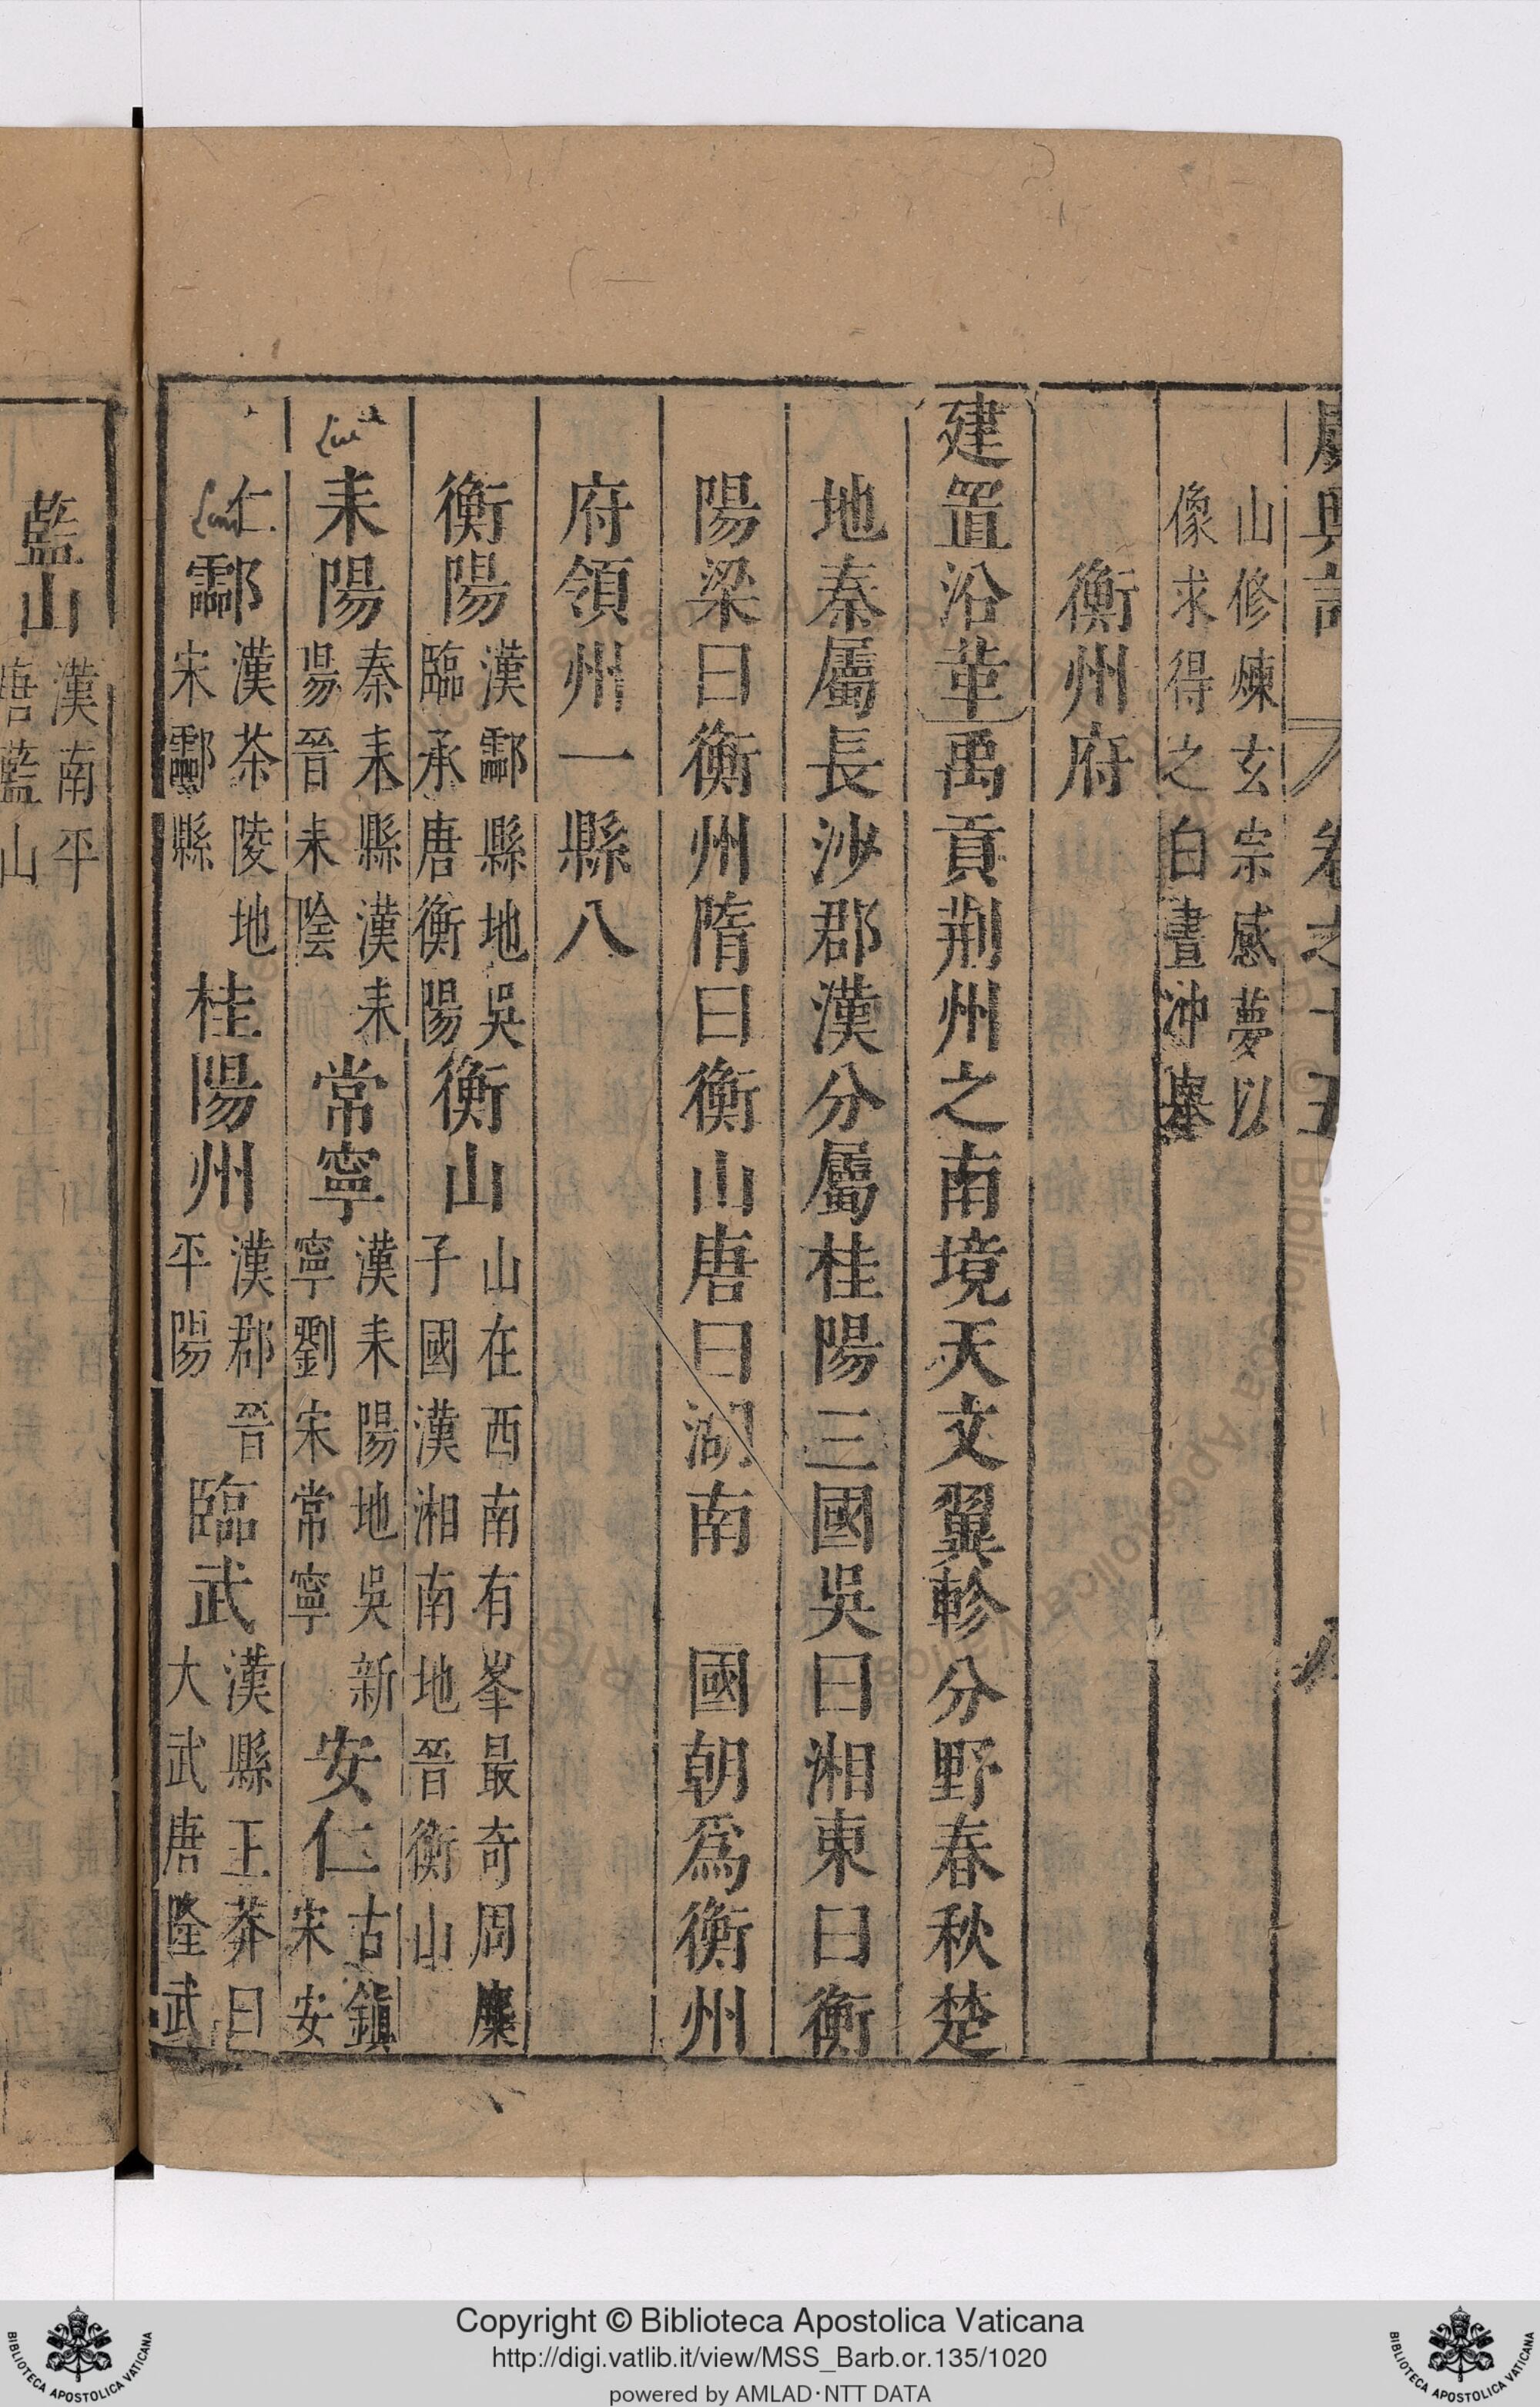 廣輿記 卷之十五
山修煉玄宗感夢以
像求得之白晝冲舉
衡州府
建置沿革禹貢荆州之南境天文翼軫分野春秋楚
地秦屬長沙郡漢分屬桂陽三國吳曰湘東曰衡
陽梁曰衡州隋曰衡山唐曰湖南 國朝爲衡州
府領州一縣八
衡陽 漢酃縣地吳 臨承唐衡陽 衡山 山在西南有峯最奇周麇 子國漢湘南地晉衡山
耒陽 秦耒縣漢耒 昜晉耒陰 常寧 漢耒陽地吳新 寧劉宋常寧 安仁 古鎮 宋安
仁 酃 漢茶陵地 宋酃縣 桂陽州 漢郡晉 平陽 臨武 漢縣王莽曰 大武唐隆武
藍山 漢南平 唐藍山
Copyright © Biblioteca Apostolica Vaticana
http://digi.vatlib.it/view/MSS_Barb.or.135/1020
powered by AMLAD·NTT DATA
BIBLIOTECA APOSTOLICA VATICANA
BIBLIOTECA APOSTOLICA VATICANA